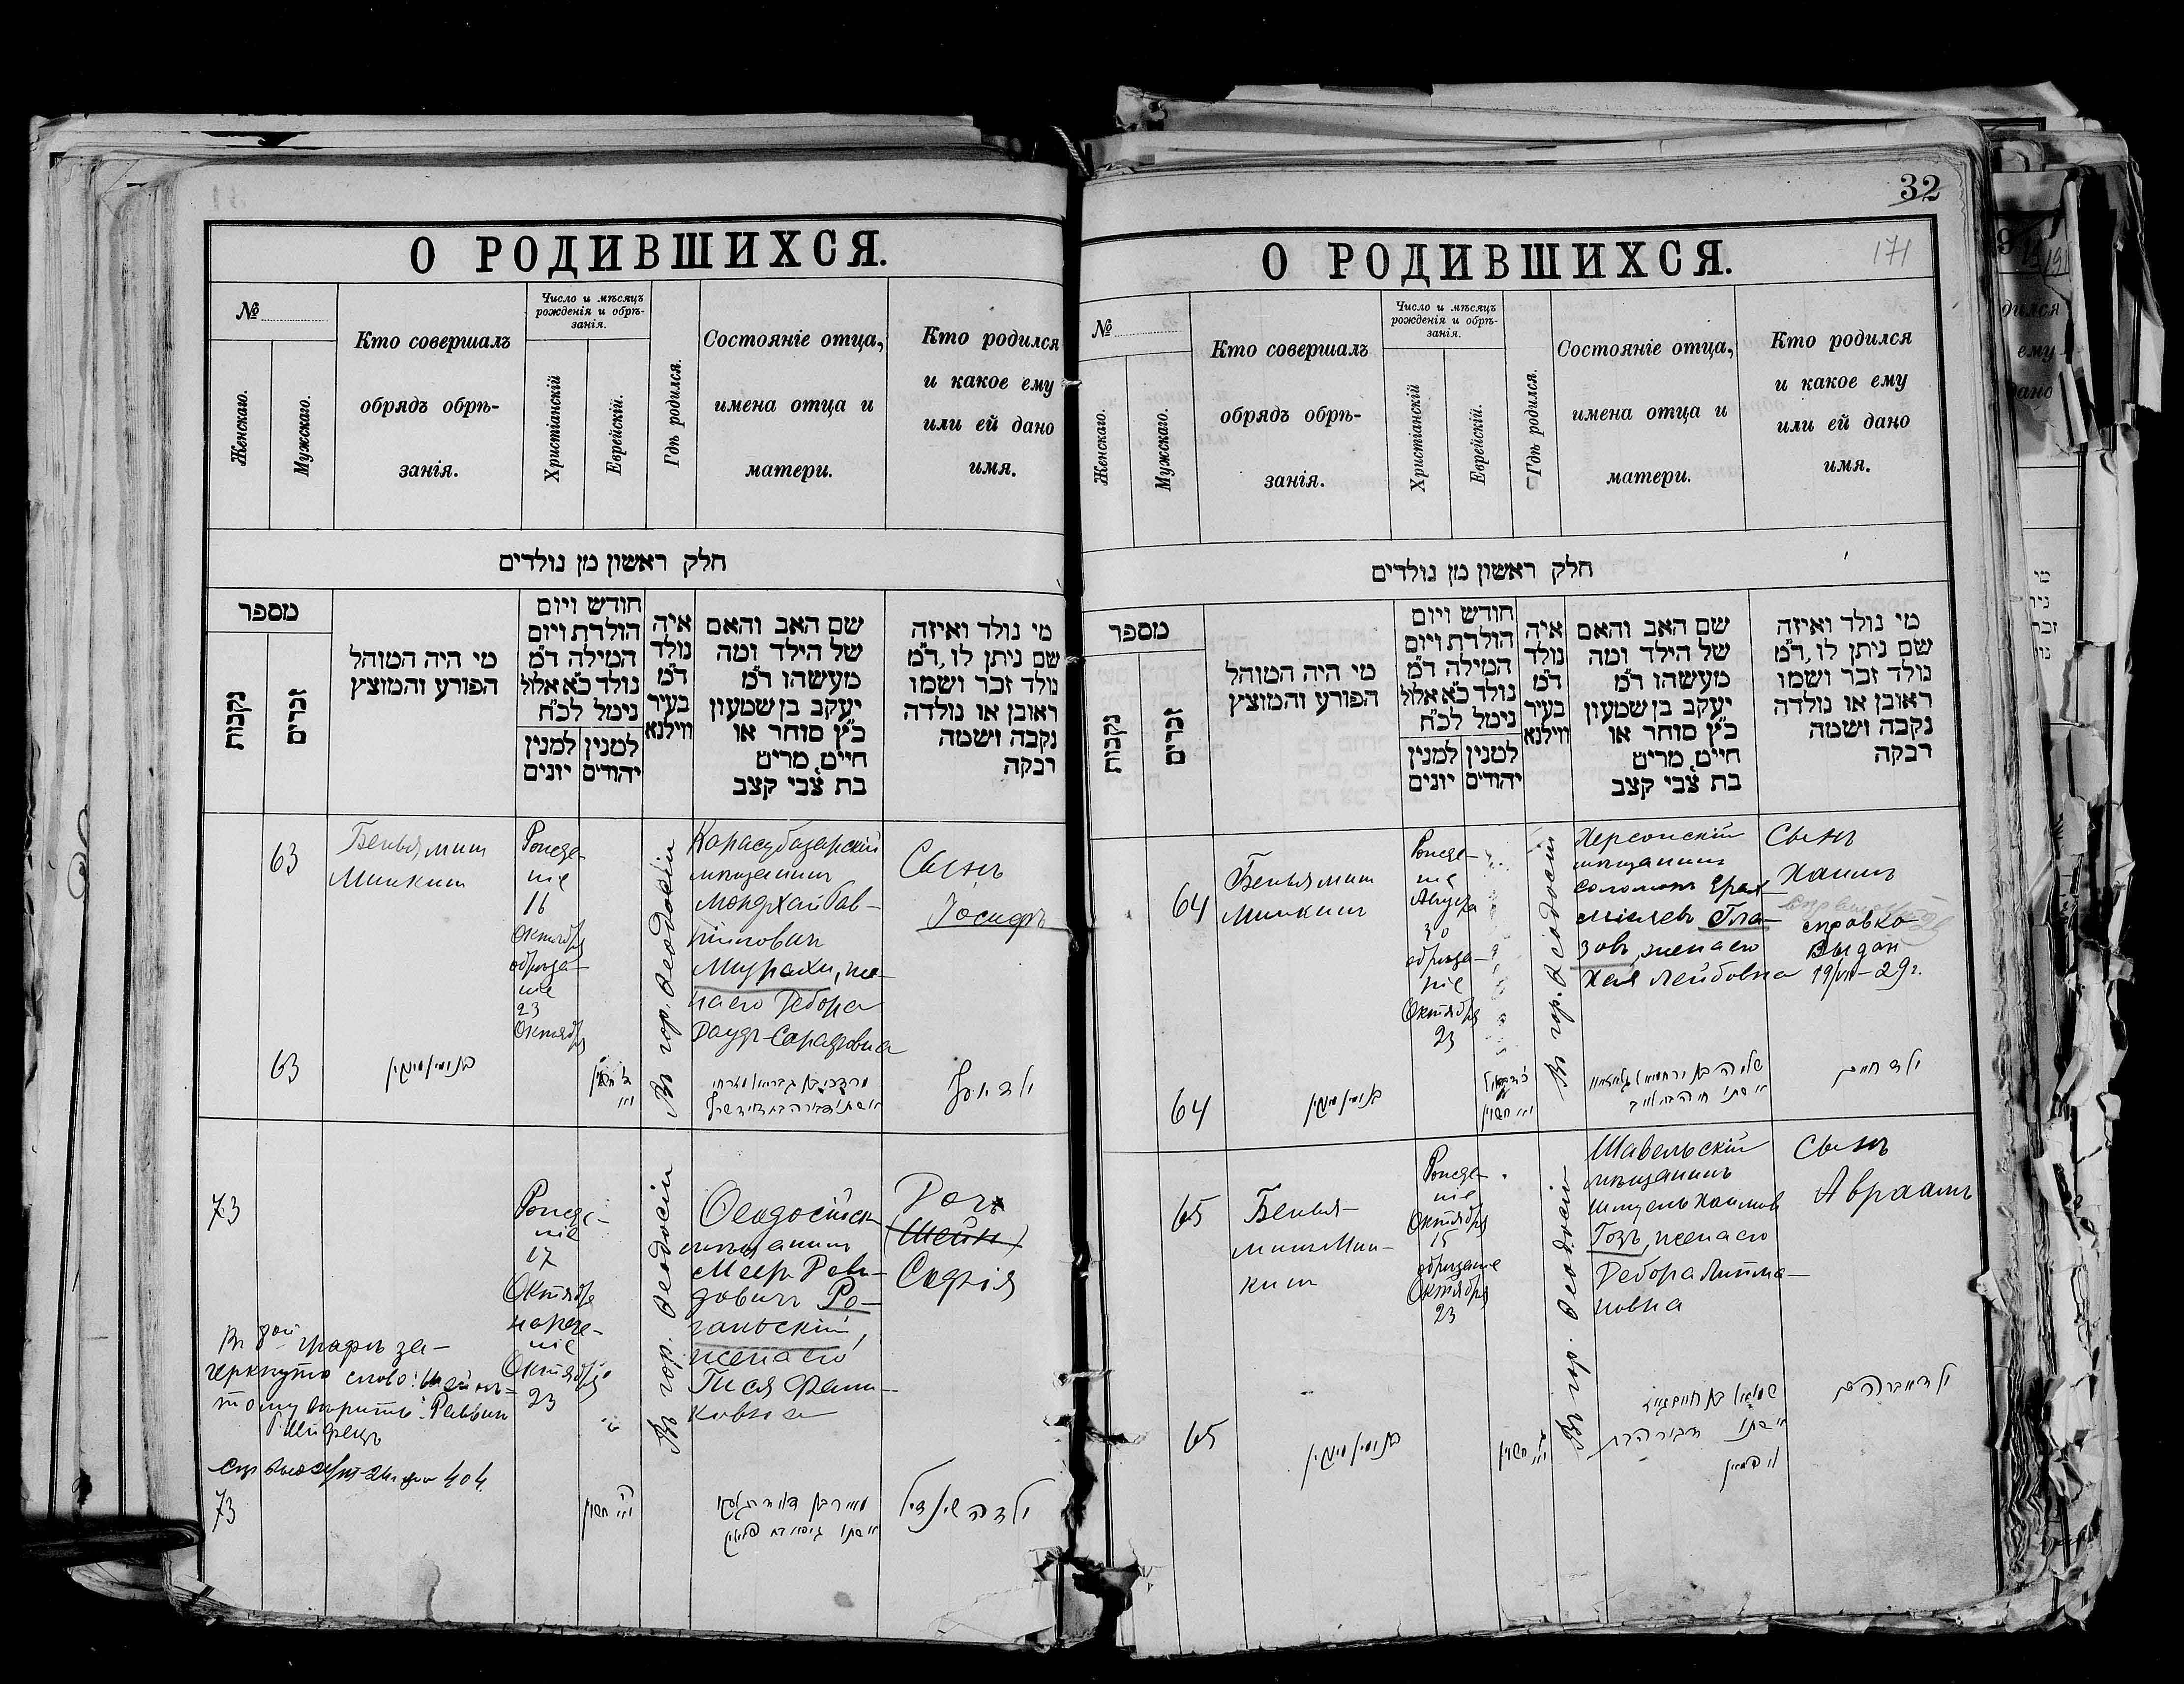 О РОДИВШИХСЯ.
№
Женскаго.
Мужскаго.
Кто совершалъ
обрядъ обрѣ-
занія.
Число и мѣсяцъ
рожденія и обрѣ-
занія.
Христіанскій
Еврейскій.
Гдѣ родился.
Состояніе отца,
имена отца и
матери.
Кто родился
и какое ему
или ей дано
имя.
חלק ראשון מן נולדים
מספר
נקבות
זכרים
מי היה המוהל
הפורע והמוצץ
חודש ויום
הולדת ויום
המילה ד״מ
נולד כ״א אלול
נימל לכ״ח
למנין יהודים
למנין יונים
איה
נולד
ד״מ
בעיר
ווילנא
שם האב והאם
של הילד ומה
מעשהו ד״מ
יעקב בן שמעון
כ״ץ סוחר או
חייט, מרים
בת צבי קצב
מי נולד ואיזה
שם ניתן לו, ד״מ
נולד זכר ושמו
ראובן או נולדה
נקבה ושמה
רבקה
63
Беньямин
Минкин
Рожде-
ніе
16
Октября
обрѣза-
ніе
23
Октября
Въ гор. Ѳеодосіи
Карасубазарскій
мѣщанинъ
Мордхай Гав-
ріилович
Мизрахи, же-
на его Дебора
Давид-Сарафовна
Сынъ
Іосифъ
63
בנימין מינקין
ילד יוסף
73
Рожде-
ніе
17
Октября
нарече-
ніе
Октября
23
Въ гор. Ѳеодосіи
Ѳеодосійск
мѣщанинъ
Меер Дави-
дович Ро-
гачьскій,
жена его
Гися
Дочь
Шейн
Софія
Въ 8ой графѣ за-
черкнуто слово: Шейн-
тому вѣрить: Раввин
404
73
חשון
32
171
О РОДИВШИХСЯ.
№
Женскаго.
Мужскаго.
Кто совершалъ
обрядъ обрѣ-
занія.
Число и мѣсяцъ
рожденія и обрѣ-
занія.
Христіанскій
Еврейскій.
Гдѣ родился.
Состояніе отца,
имена отца и
матери.
Кто родился
и какое ему
или ей дано
имя.
חלק ראשון מן נולדים
מספר
נקבות
זכרים
מי היה המוהל
הפורע והמוצץ
חודש ויום
הולדת ויום
המילה ד״מ
נולד כ״א אלול
נימל לכ״ח
למנין יהודים
למנין יונים
איה
נולד
ד״מ
בעיר
ווילנא
שם האב והאם
של הילד ומה
מעשהו ד״מ
יעקב בן שמעון
כ״ץ סוחר או
חייט, מרים
בת צבי קצב
מי נולד ואיזה
שם ניתן לו, ד״מ
נולד זכר ושמו
ראובן או נולדה
נקבה ושמה
רבקה
64
Беньямин
Минкинъ
Рожде-
ніе
Августа
30
обрѣза-
ніе
Октября
23
Въ гор. Ѳеодосіи
Херсонскій
мѣщанинъ
Соломонъ Ерах-
міилевъ Гла-
зовъ, жена его
Хая Лейбовна
Сынъ
Хаимъ
справка
Выдан
19/VII-29 г.
64
בנימין מינקין
ילד חיים
65
Бенья-
мин Мин-
кин
Рожде-
ніе
Октября
15
обрѣзаніе
Октября
23
Въ гор. Ѳеодосіи
Шавельскій
мѣщанинъ
Шмуель Хаимов
Гозъ, жена его
Дебора Литма-
новна
Сынъ
Авраамъ
65
בנימין מינקין
ילד אברהם